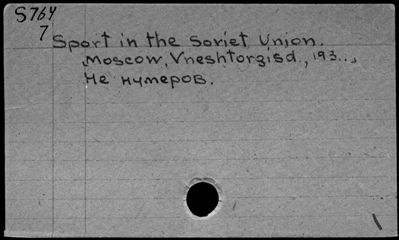 S764
7
Sport in the Soviet Union.
Moscow, Vneshtorgisd., 193..,
Не нумеров.